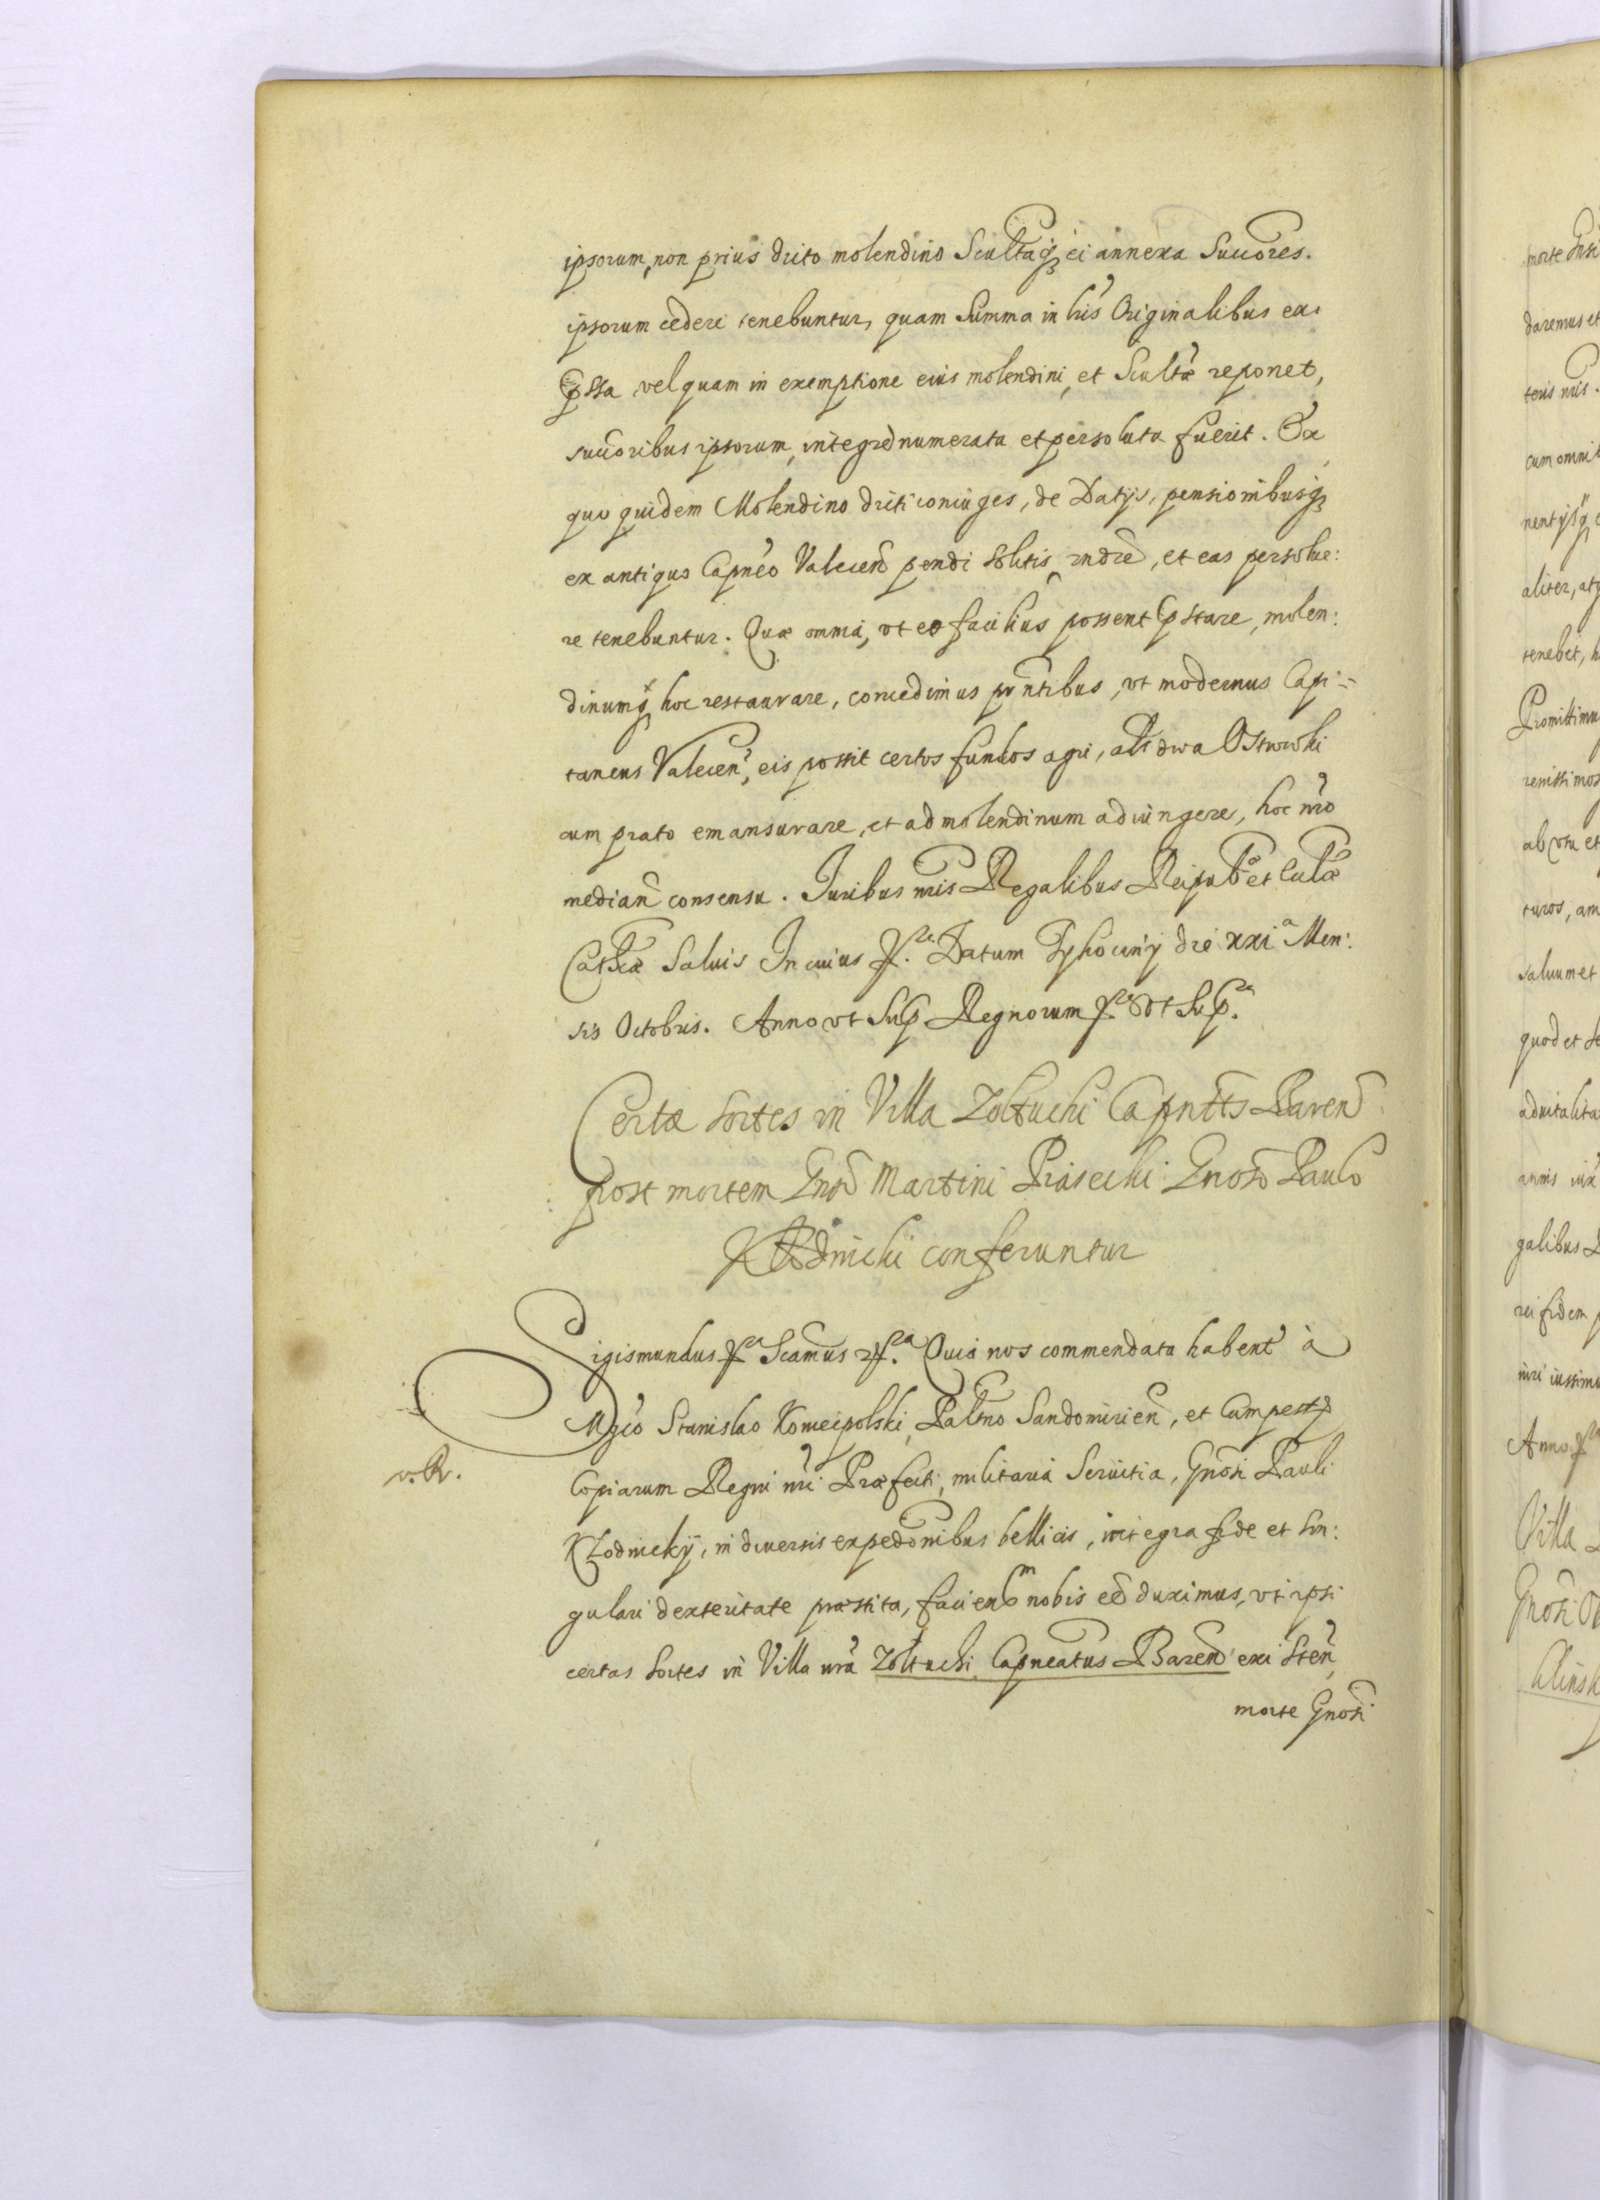 ipsorum, non prius dicto molendino Scultaq ei annexa Succores.
ipsorum cedere tenebuntur, quam Summa in lris Originalibus ex
pssa vel quam in exemptione eius molendini, et Scultæ reponet,
succoribus ipsorum, integrè numerata et persoluta fuerit. Ex
quo quidem Molendino dicti coniuges, de Datijs, pensionibusq
ex antiquo Capneo Valecen pendi solitis rndre, et eas persolue:
re tenebuntur. Quæ omnia, vt eo facilius possent pstare, molen:
dinumq hoc restaurare, concedimus pntibus, vt modernus Capi=
taneus Valecen, eis possit certos fundos agri, als dwa Ostrowki
cum prato emansurare, et ad molendinum adiungere, hoc nro
median consensu. Juribus nris Regalibus Reipub et Ecclæ
Cathcæ Saluis In cuius rei. Datum Tykocinij die xxi a Men:
sis Octobris. Anno vt Sup Regnorum vt Sup.
Certæ sortes in Villa Zoltuchi Capntts Baren
post mortem Gnsi Martini Piasecki Gnoso Paulo
Kłodnicki conferuntur
Sigismundus Scamus Quia nos commendata habent à
Mgco Stanislao Koniecpolski, Paltno Sandomirien, et Campest
Copiarum Regni nri Præfecti, militaria Seruitia, Gnosi Pauli
Kłodnickij, in diuersis expedonibus bellicis, integra fide et sin:
gulari dexteritate præstita, faciend nobis ee duximus, vt ipsi
v. R.
certas sortes in Villa nra Zoltuchi Capneatus Baren existen,
morte Gnosi
morte Gnsi
daremus et
teris nris.
cum omnib
aliter, atq
tenebit, h
Promittimus
renissimos
ab vsu et
turos, am
saluum et
quod et
aduitalita
annis
galibus
rei fidem
nri iussimus
Anno
Villa
Gnosi